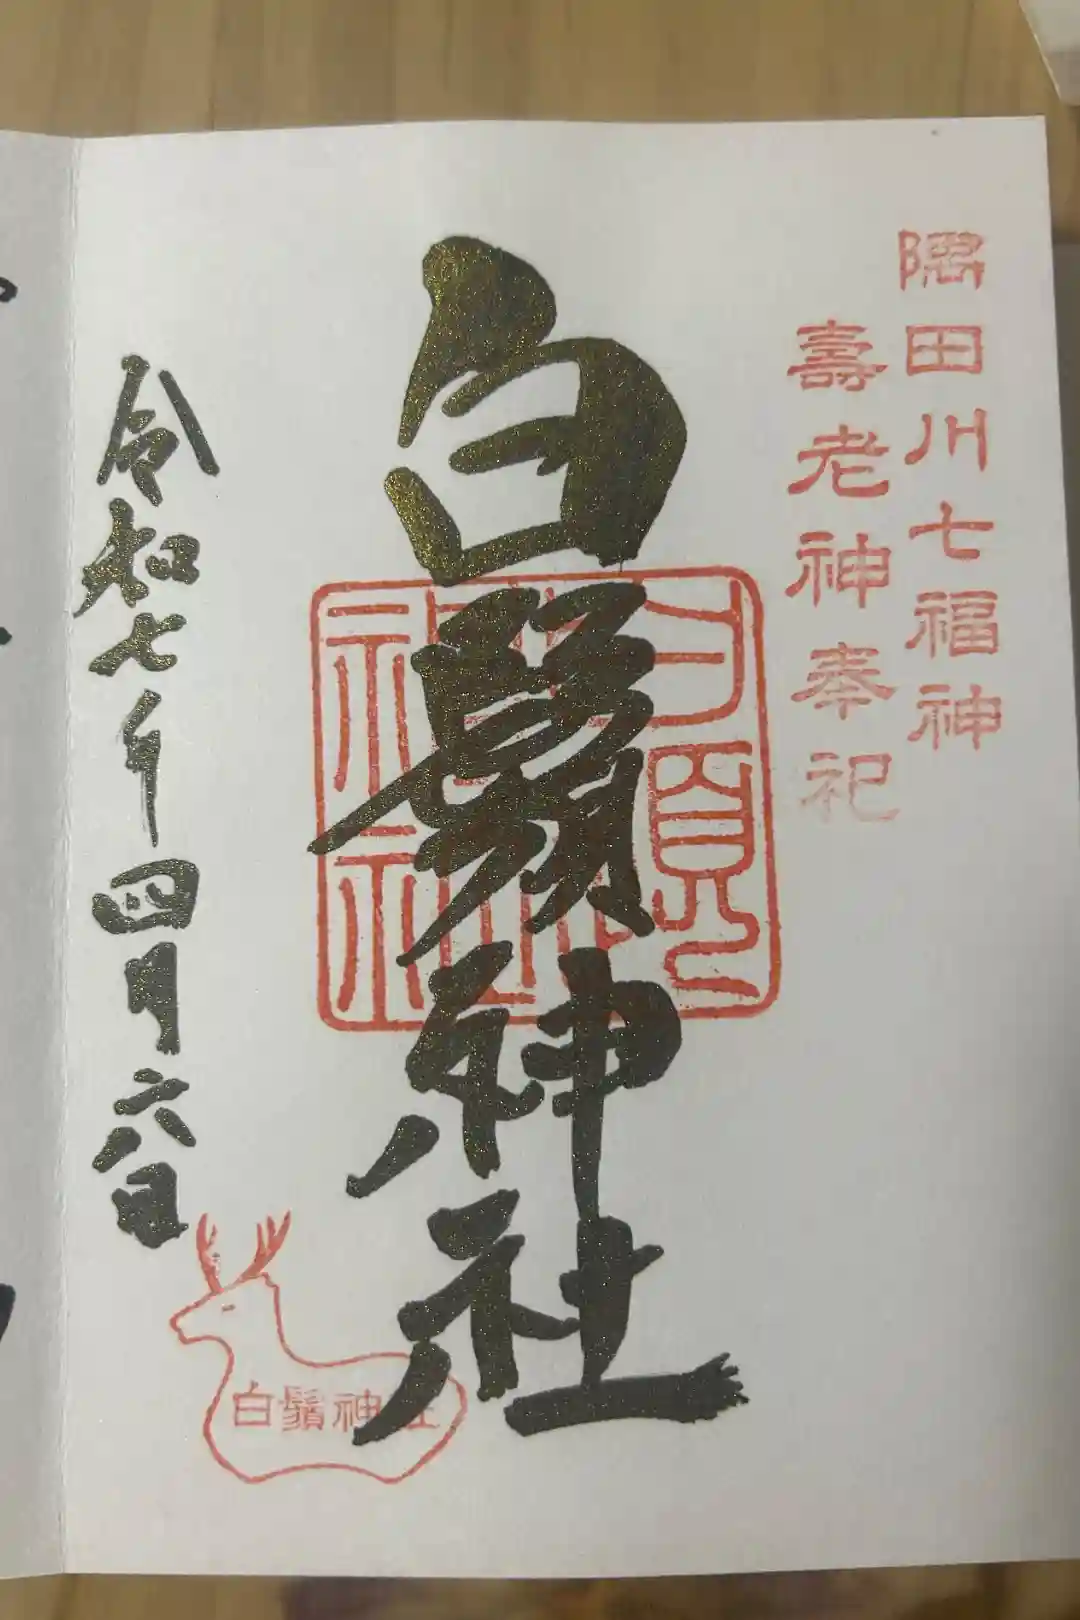 隅田川七福神
壽老神奉祀
白鬚神社
令和七年四月六日
白鬚神社